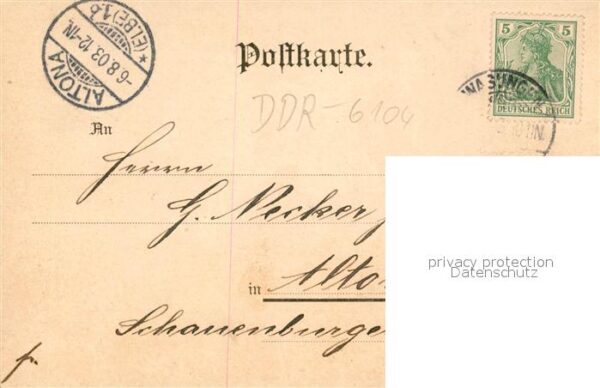 ALTONA
*(ELBE)1.b
-6.8.03.12-1N.
Postkarte.
5 5
DEUTSCHES REICH
DDR-6104
An
Herrn
G. Necker
in Alto
Schauenburge
privacy protection
Datenschutz